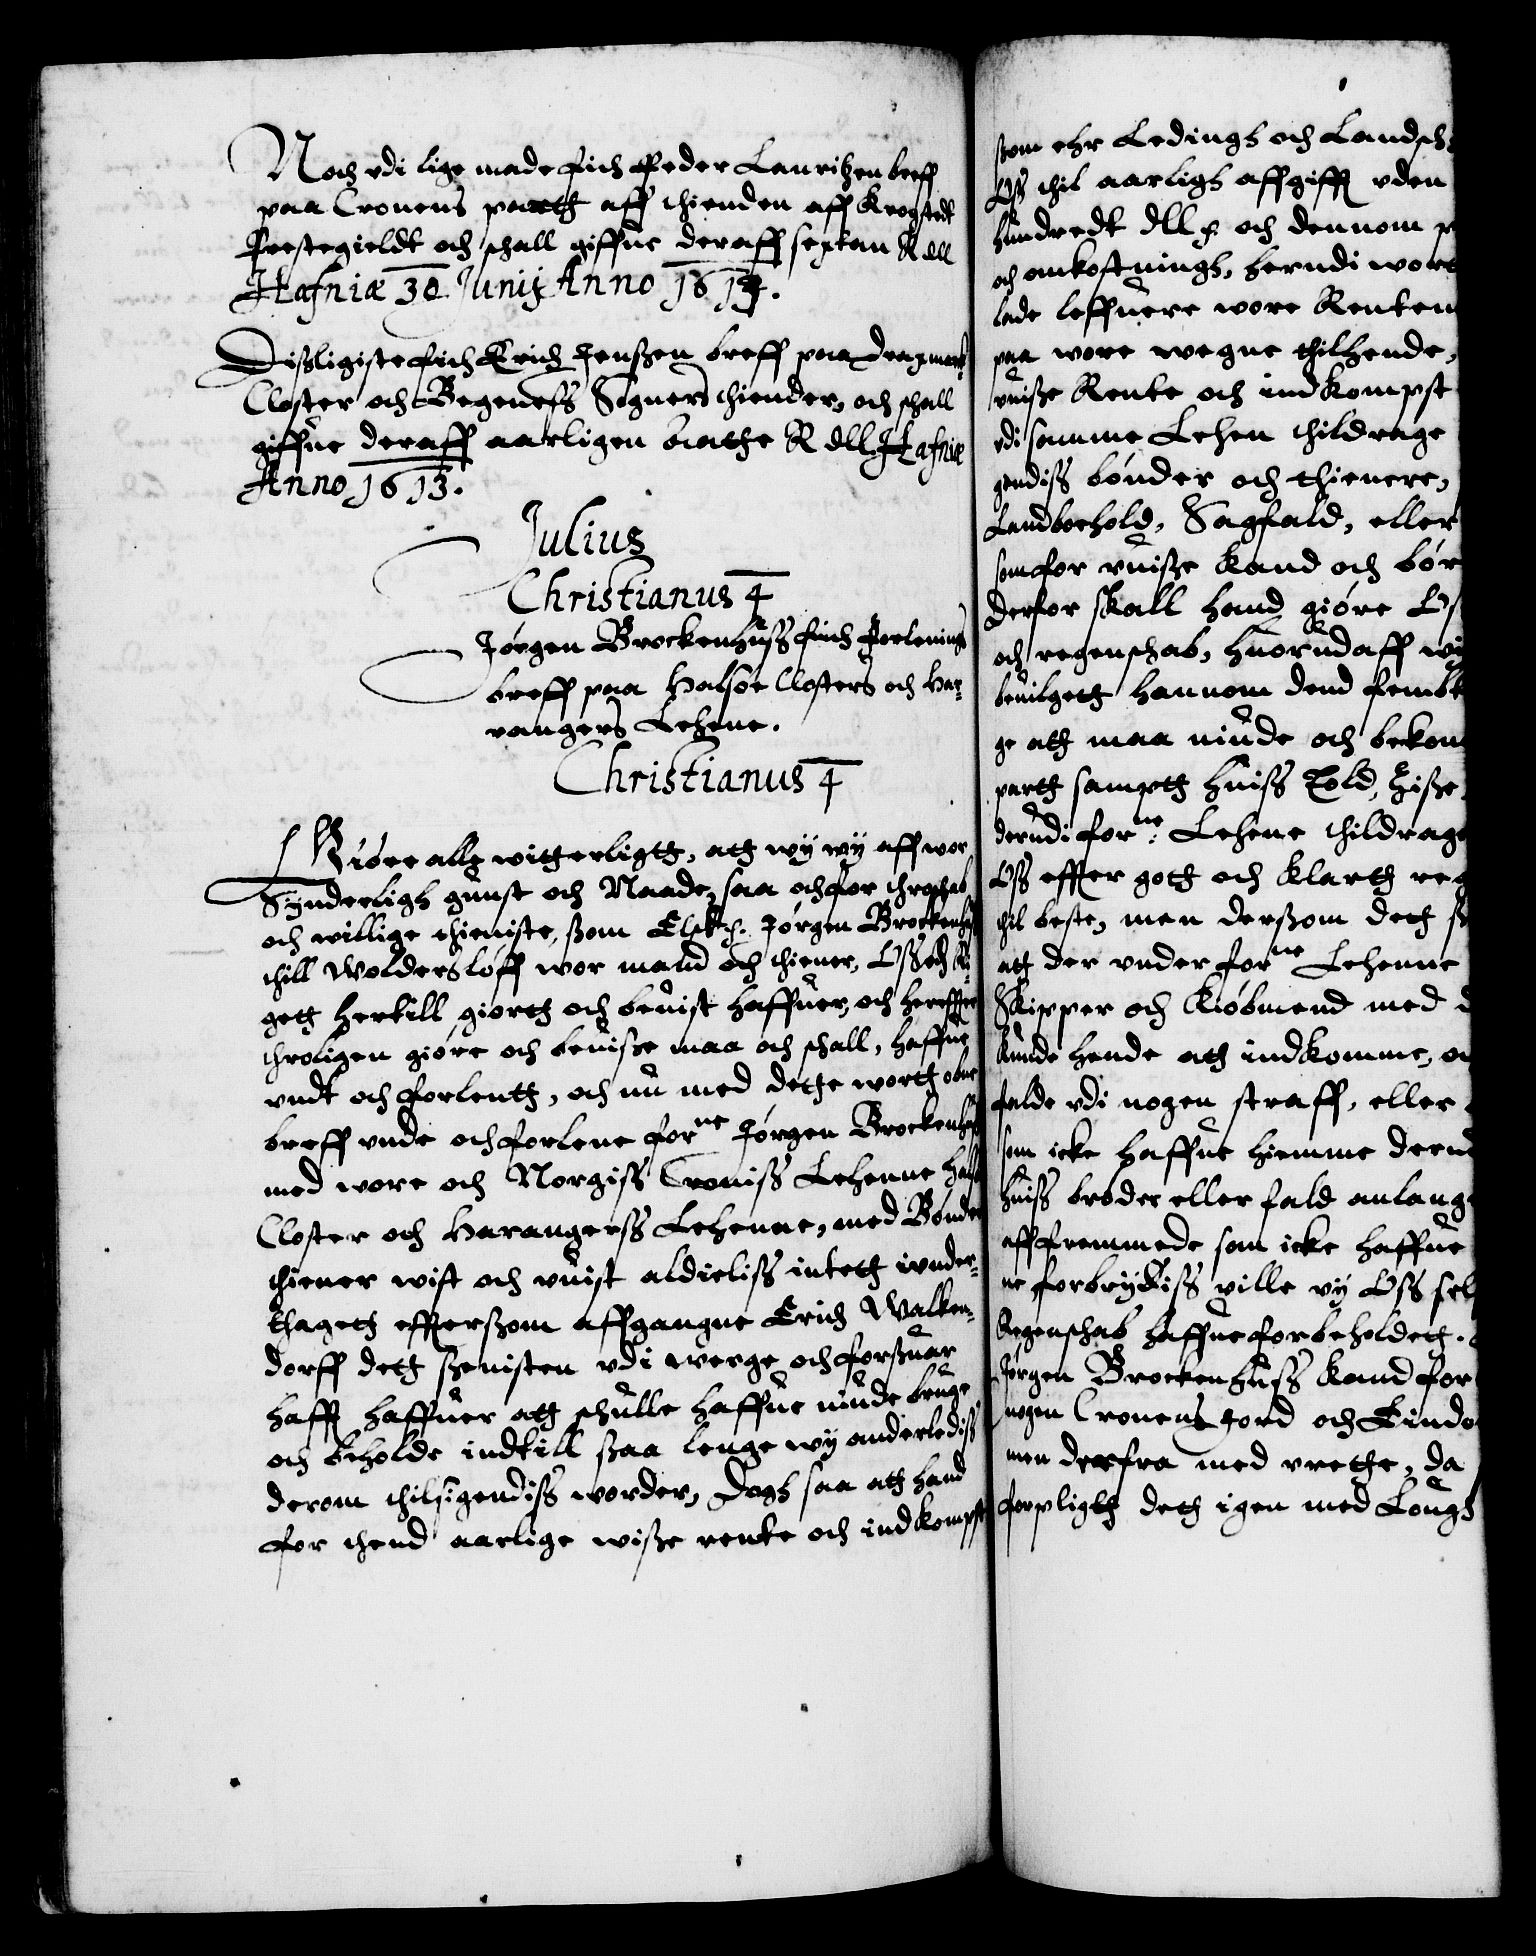 Noch vdi lige made fich Peder Lauritzen breff
paa Cronens parth aff thienden aff Krogstedt
Prestegieldt och schall giffue deraff sextan R dll
Hafniæ 30 Junij Anno 1613.
Dissligiste fich Erich Jenssen breff paa Dragmark
Closter och Bogeness Sogners thiender, och schall
giffue deraff aarligen otthe R dll. Hafniæ
Anno 1613.
Julius
Christianus 4
Jørgen Brockenhuss fich Forlenings
breff paa Halsøe Closters och Har-
rangers Lehene.
Christianus 4
Giøre alle witterligtt, ath wij wij aff wor
Synderligh gunst och Naade, saa och for throschab
och willige thieniste, ssom Elsk. Jørgen Brockenhuss
thill Woldersløff wor mand och thiener, Oss och Ri-
geth hertill giorth och beuist haffuer, och hereffter
throligen giøre och beuisse maa och schall, haffue
vndt och forlenth, och nu med dette worth obne
breff vnde och forlene forne Jørgen Brockenhuss
med wore och Norgiss Croniss Lehenne Halsøe
Closter och Harangerss Lehenne, med Bønder
thiener wist och vuist aldieliss inteth wnder-
thageth effterssom affgangne Erich Walken-
dorff deth ssenisten vdi werge och forssuar
hafft haffuer ath schulle haffue niude bruge
och beholde indtill ssaa lenge wy anderlediss
derom thilsigendiss worder, Dogh saa ath hand
for thend aarlige wisse rente och indkompst
som ehr Ledingh och Landsch
Oss thil aarligh affgifft vden
hundredt dllr och dennom p
och omkostningh, herudi wore
lade leffuere wore Rentem
paa wore wegne thilhende,
vuisse Rente och indkompst
vdi samme Lehen thildrage
gendiss bønder och thienere,
Landboehold, Sagfald, eller
som for vuisse kand och bør
derfor skall hand giøre Os
och regenschab, huorudaff wi
beuilgeth hannom dend femte
ge ath maa niude och bekom
parth sampth huiss Told, Zise
derudi forne: Lehene thildrage
Oss effter goth och klarth reg
thil beste, men derssom deth s
att der vnder forne Lehenne
Skipper och Kiøbmend med d
kunde hende ath indkomme, oc
falde vdi nogen straff, eller
som icke haffue hiemme derud
huiss brøder eller fald anlang
aff fremmede som icke haffue
ne forbrydiss ville vy Oss sel
Regenschab haffue forbeholdeth.
Jørgen Brockenhuss kand for
nogen Cronens Jord och Eindo
men derfra med vrette, da
forpligth deth igen med Lough